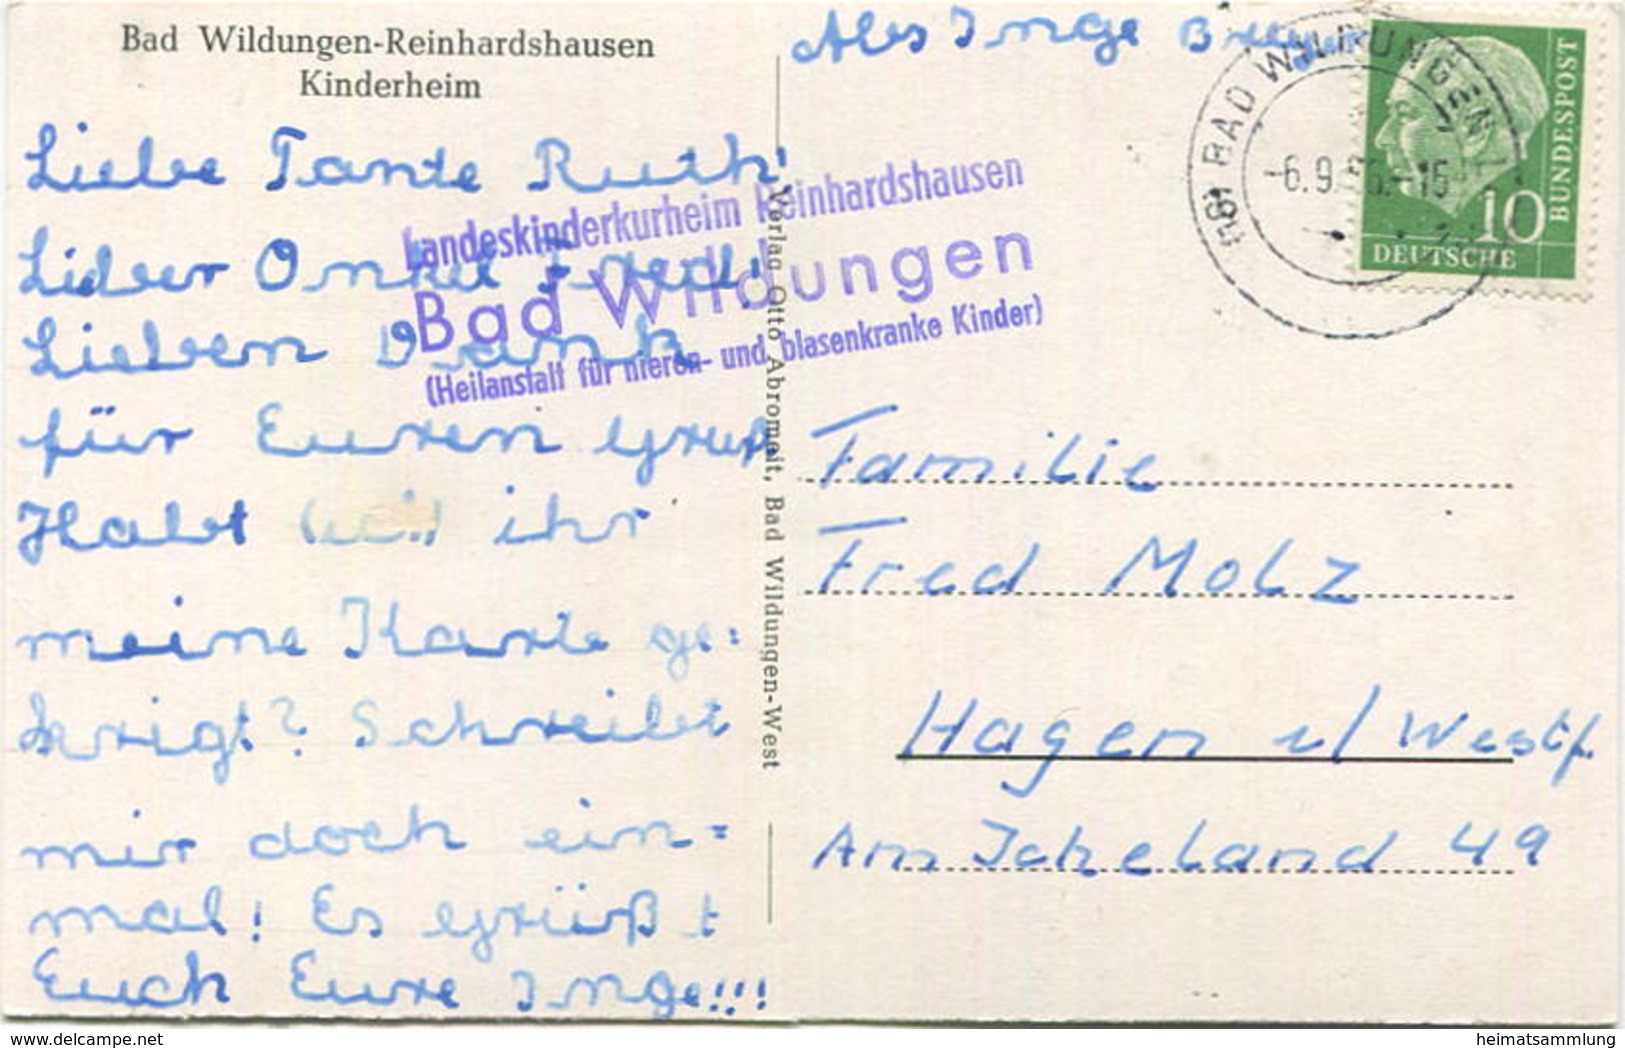 Bad Wildungen-Reinhardshausen
Kinderheim
Liebe Tante Ruth!
Lieber Onkel Fred!
Lieben Dank
für Euren Gruß
Habt ihr
meine Karte ge=
krigt? Schreibt
mir doch ein=
mal! Es grüßt
Euch Eure Inge!!!
Landeskinderkurheim Reinhardshausen
Bad Wildungen
(Heilanstalt für nieren- und blasenkranke Kinder)
Verlag Otto Abromeit, Bad Wildungen-West
Abs Inge
BAD WILDUNGEN
-6.9. -15
BUNDESPOST
10
DEUTSCHE
Familie
Fred Molz
Hagen i/ Westf.
Am Ischeland 49
www.delcampe.net
heimatsammlung